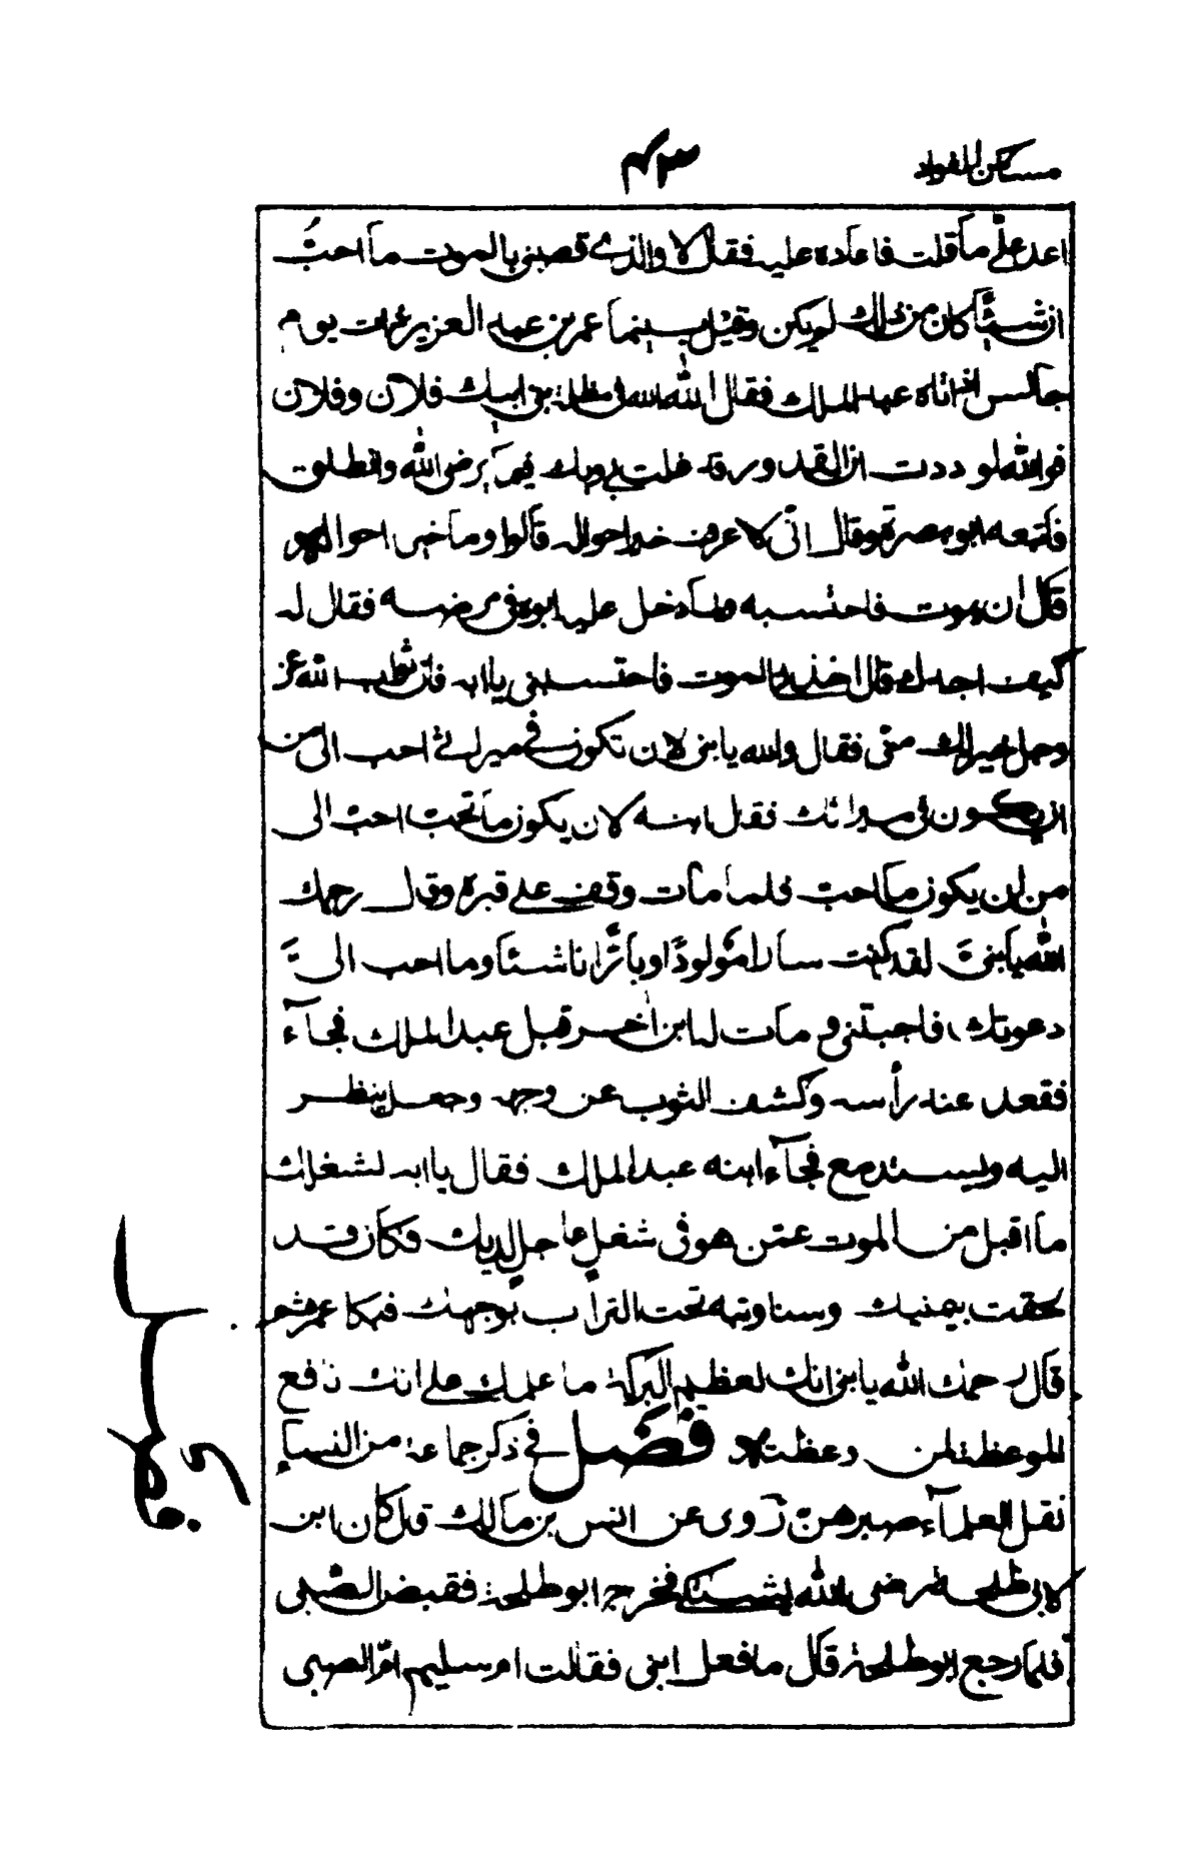 مسكن الفواد
٤٣
اعد علّي ما قلت فاعاده عليه فقال لا والذي قصبنى بالموت ما احبّ
ان شيئا كان من ذلك لم يكن وقيل بينما عمر بن عبد العزيز ذات يوم
جالس اذ اتاه عبد الملك فقال الله الله فى مظلمة بنى ابيك فلان وفلان
فوالله لوددت ان القدور قد غلت بى وبك فيما يرضى الله وانطلق
فاتبعه ابوه بصره وقال انّى لاعرف خير احواله قالوا وما خير احواله
قال ان يموت فاحتسبه ولما دخل عليه ابوه فى مرضه فقال له
كيف اجدك قال اجدنى بالموت فاحتسبنى يا ابه فان ثواب الله عز
وجل خير لك منّى فقال والله يا بنى لان تكون في ميزاني احب الى من
ان يكون فى ميزانك فقال ابنه لان يكون ما تحبّ احبّ الى
من ان يكون ما احبّ فلما مات وقف على قبره وقال رحمك
الله يا بنىّ لقد كنت سارا مولودًا وبارًّا ناشئا وما احب الىّ
دعوتك فاجبتنى ومات له ابن اخر قبل عبد الملك فجآء
فقعد عند رأسه وكشف الثوب عن وجهه وجعل ينظر
اليه ويستدمع فجآء ابنه عبد الملك فقال يا ابه لشغلك
ما اقبل من الموت عمّن هو فى شغل عاجل لديك فكان قد
لحقت بيمنيك وساويته تحت التراب بوجهك فبكا عمر ثم
قال رحمك الله يا بنى انك لعظيم البركة ما علمك على انك نافع
الموعظة لمن وعظت فصل في ذكر جماعة من النساء
نقل العلمآء صبرهنّ روى عن انس بن مالك قال كان ابن
لابى طلحة رضى الله يشتكى فخرج ابو طلحة فقبض الصّبى
فلما رجع ابو طلحة قال ما فعل ابنى فقالت ام سليم امّ الصبى